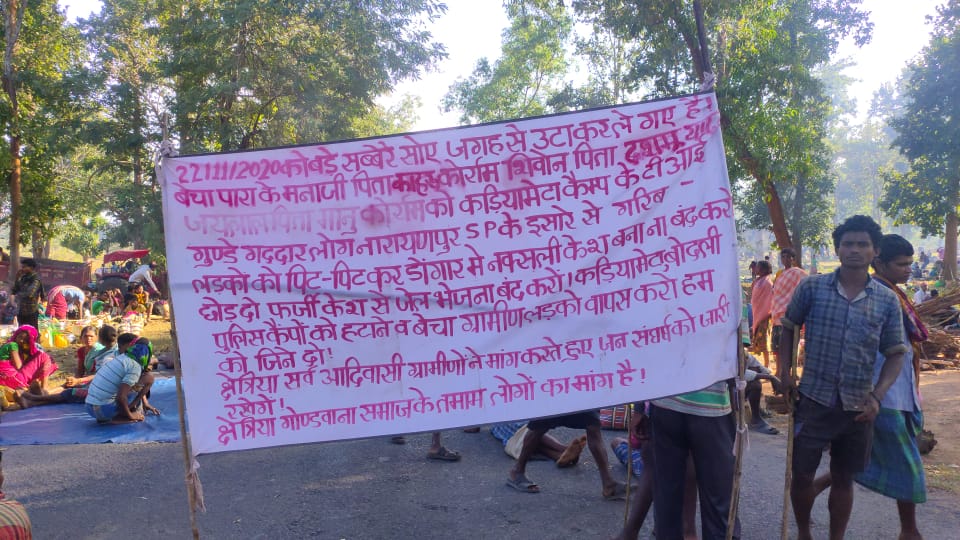 22/11/2020 को बडे़ सुब्बेरे सोए जगह से उटाकर ले गए है!
बेचा पारा के मनाजी पिता कोर्राम शिवान पिता दशमू
को कडियामेटा कैम्प के टी आई
गुण्डे गद्दार लोग नारायणपुर SP के इसारे से गरिब -
लडको को पिट-पिट कर डोंगार मे नक्सली केश बना ना बंद करो
छोड दो फर्जी केश से जेल भेजना बंद करो। कडियामेटा बोदली
पुलिस कैपों को हटाने व बेचा ग्रामीण लडको वापस करो हम
को जिने दो!
क्षेत्रिया सर्व आदिवासी ग्रामीणों ने मांग करते हुए जन संघर्ष को जारी
रखेगें!
क्षेत्रिया गोण्डवाना समाज के तमाम लोगों का मांग है!